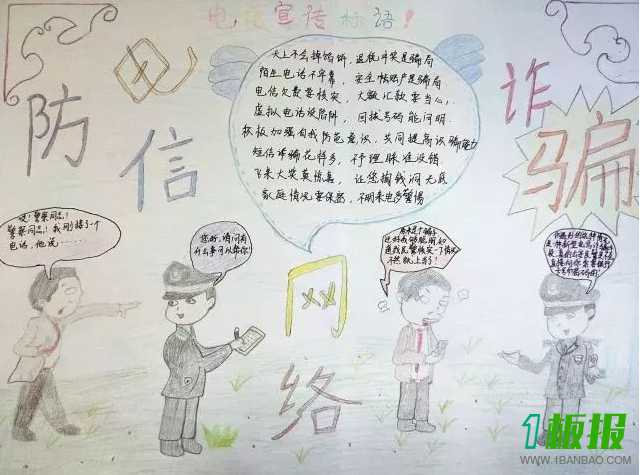 电信宣传标语!
防 电信 诈骗
网络
天上不会掉馅饼,退税中奖是骗局
陌生电话不牢靠,安全帐户是骗局
电信欠费要核实,大额汇款要当心,
虚拟电话设陷阱,回拨号码能问明.
积极加强自我防范意识,共同提高识骗能力
短信诈骗花样多,不予理睬准没错
飞来大奖莫惊喜,让您掏钱洞无底
家庭情况要保密,不明来电多警惕
哎!警察同志,
警察同志!我刚接了个
电话,他说……
您好,请问有
什么事可以帮你?
原来是个骗子
不然就上当了!
1板报
WWW.1BANBAO.COM